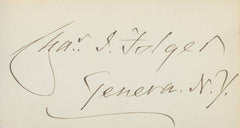 Chas. J. Folger
Geneva. N.Y.